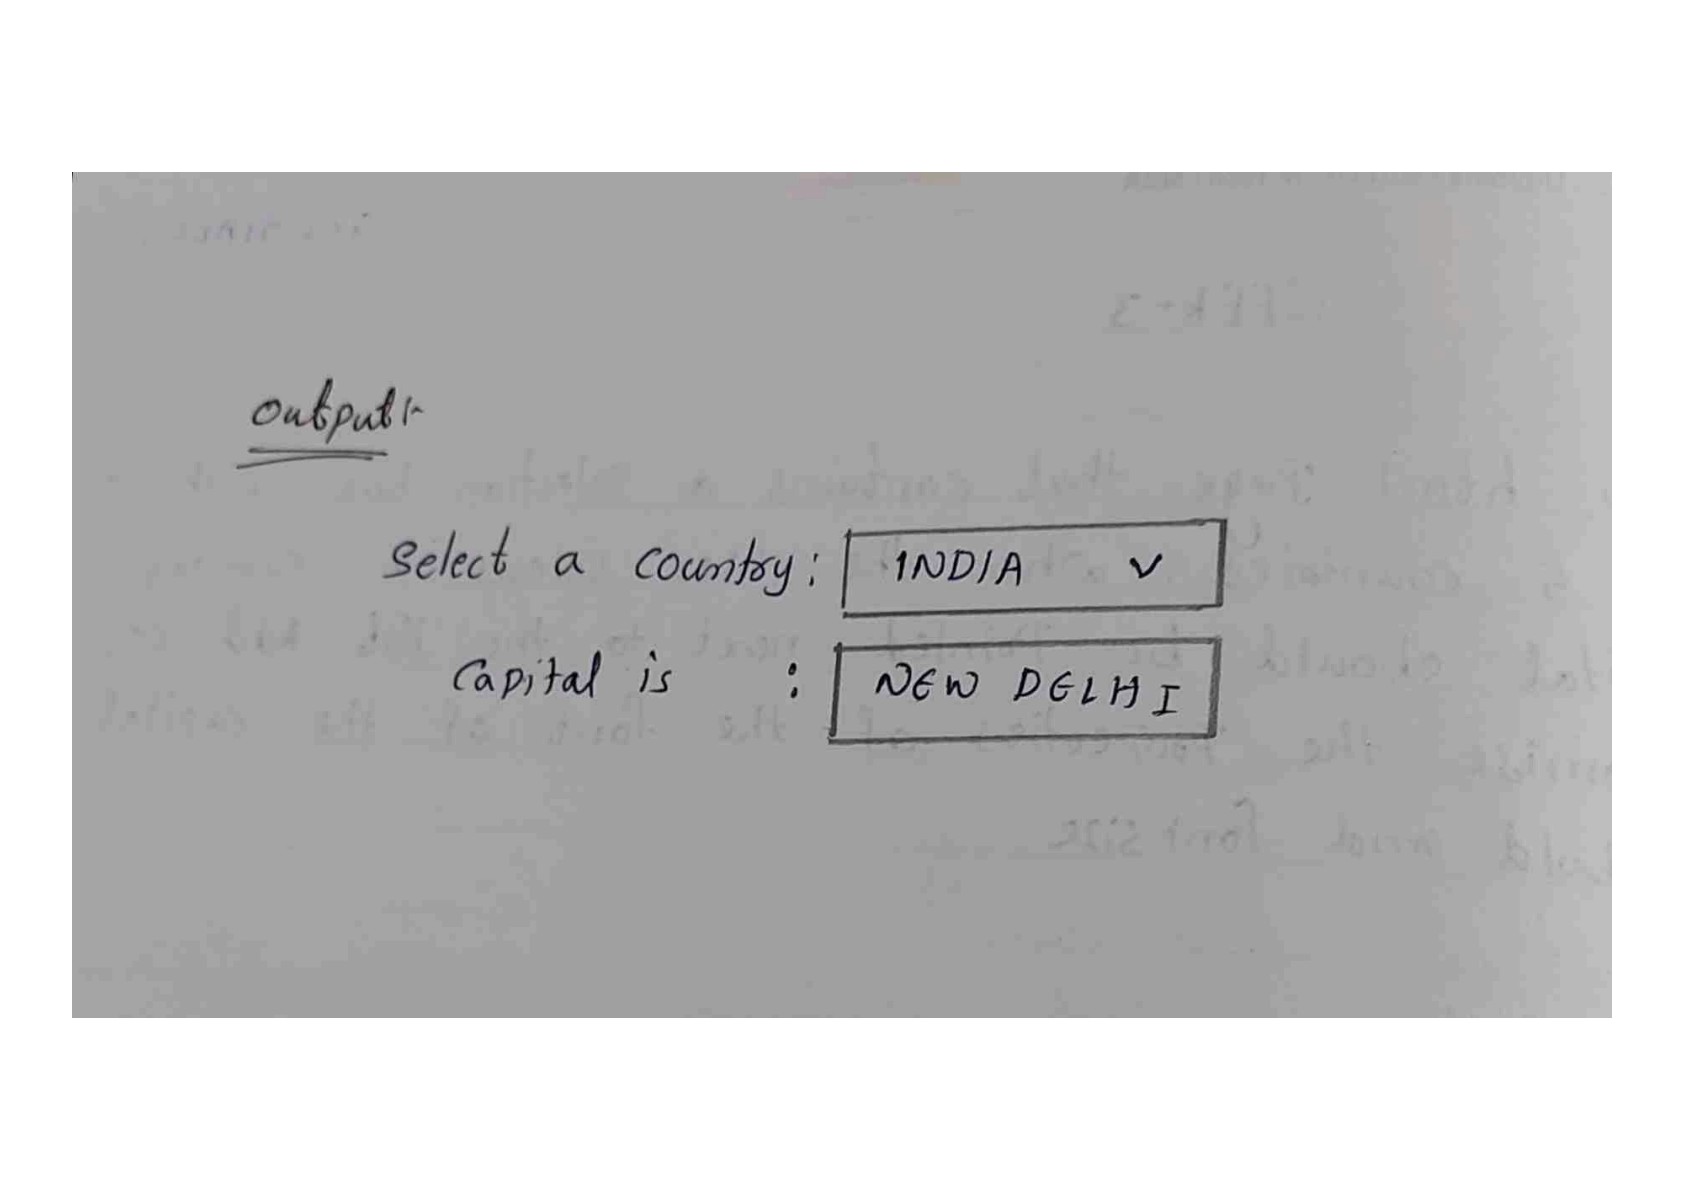 Output:-
Select a country: INDIA v
Capital is : NEW DELHI